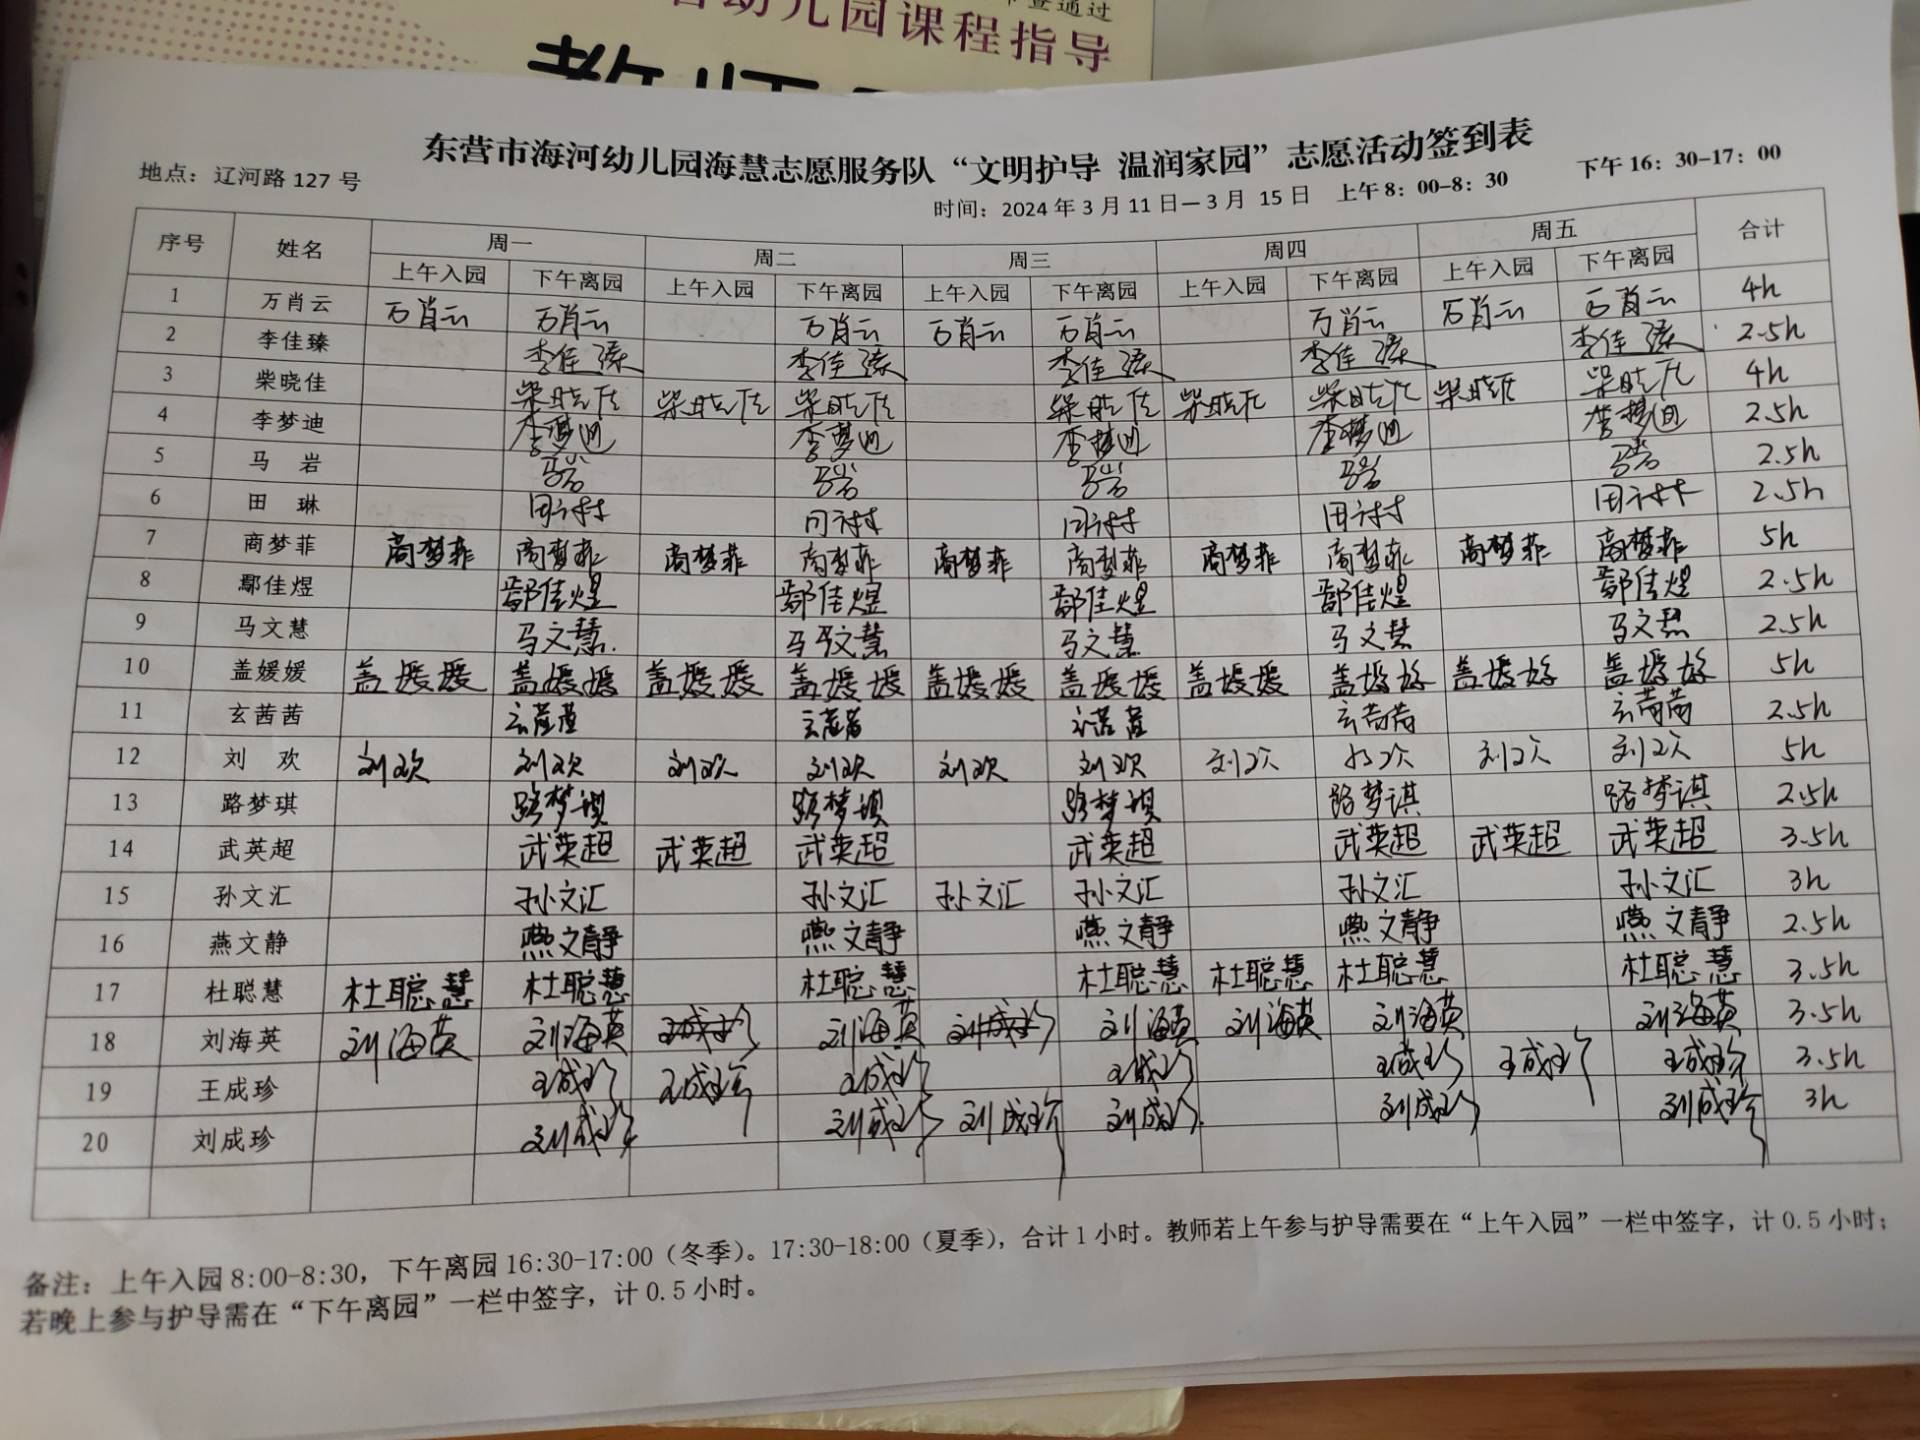 审查通过
幼儿园课程指导
东营市海河幼儿园海慧志愿服务队“文明护导 温润家园”志愿活动签到表
地点：辽河路 127 号 时间：2024 年 3 月 11 日—3 月 15 日 上午 8：00-8：30 下午 16：30-17：00
序号 姓名 周一 周二 周三 周四 周五 合计
上午入园 下午离园 上午入园 下午离园 上午入园 下午离园 上午入园 下午离园 上午入园 下午离园
1 万肖云 万肖云 万肖云 万肖云 万肖云 万肖云 万肖云 万肖云 万肖云 4h
2 李佳臻 李佳臻 李佳臻 李佳臻 李佳臻 李佳臻 2.5h
3 柴晓佳 柴晓佳 柴晓佳 柴晓佳 柴晓佳 柴晓佳 柴晓佳 柴晓佳 柴晓佳 4h
4 李梦迪 李梦迪 李梦迪 李梦迪 李梦迪 李梦迪 2.5h
5 马 岩 马岩 马岩 马岩 马岩 马岩 2.5h
6 田 琳 田琳 田琳 田琳 田琳 田琳 2.5h
7 商梦菲 商梦菲 商梦菲 商梦菲 商梦菲 商梦菲 商梦菲 商梦菲 商梦菲 商梦菲 商梦菲 5h
8 鄢佳煜 鄢佳煜 鄢佳煜 鄢佳煜 鄢佳煜 鄢佳煜 2.5h
9 马文慧 马文慧 马文慧 马文慧 马文慧 马文慧 2.5h
10 盖媛媛 盖媛媛 盖媛媛 盖媛媛 盖媛媛 盖媛媛 盖媛媛 盖媛媛 盖媛媛 盖媛媛 盖媛媛 5h
11 玄茜茜 玄茜茜 玄茜茜 玄茜茜 玄茜茜 玄茜茜 2.5h
12 刘 欢 刘欢 刘欢 刘欢 刘欢 刘欢 刘欢 刘欢 刘欢 刘欢 刘欢 5h
13 路梦琪 路梦琪 路梦琪 路梦琪 路梦琪 路梦琪 2.5h
14 武英超 武英超 武英超 武英超 武英超 武英超 武英超 武英超 3.5h
15 孙文汇 孙文汇 孙文汇 孙文汇 孙文汇 孙文汇 孙文汇 3h
16 燕文静 燕文静 燕文静 燕文静 燕文静 燕文静 2.5h
17 杜聪慧 杜聪慧 杜聪慧 杜聪慧 杜聪慧 杜聪慧 杜聪慧 杜聪慧 3.5h
18 刘海英 刘海英 刘海英 王成珍 刘海英 刘成珍 刘海英 刘海英 刘海英 刘海英 3.5h
19 王成珍 王成珍 王成珍 王成珍 王成珍 王成珍 王成珍 王成珍 3.5h
20 刘成珍 刘成珍 刘成珍 刘成珍 刘成珍 刘成珍 刘成珍 3h
备注：上午入园 8:00-8:30，下午离园 16:30-17:00（冬季）。17:30-18:00（夏季），合计 1 小时。教师若上午参与护导需要在“上午入园”一栏中签字，计 0.5 小时；
若晚上参与护导需在“下午离园”一栏中签字，计 0.5 小时。